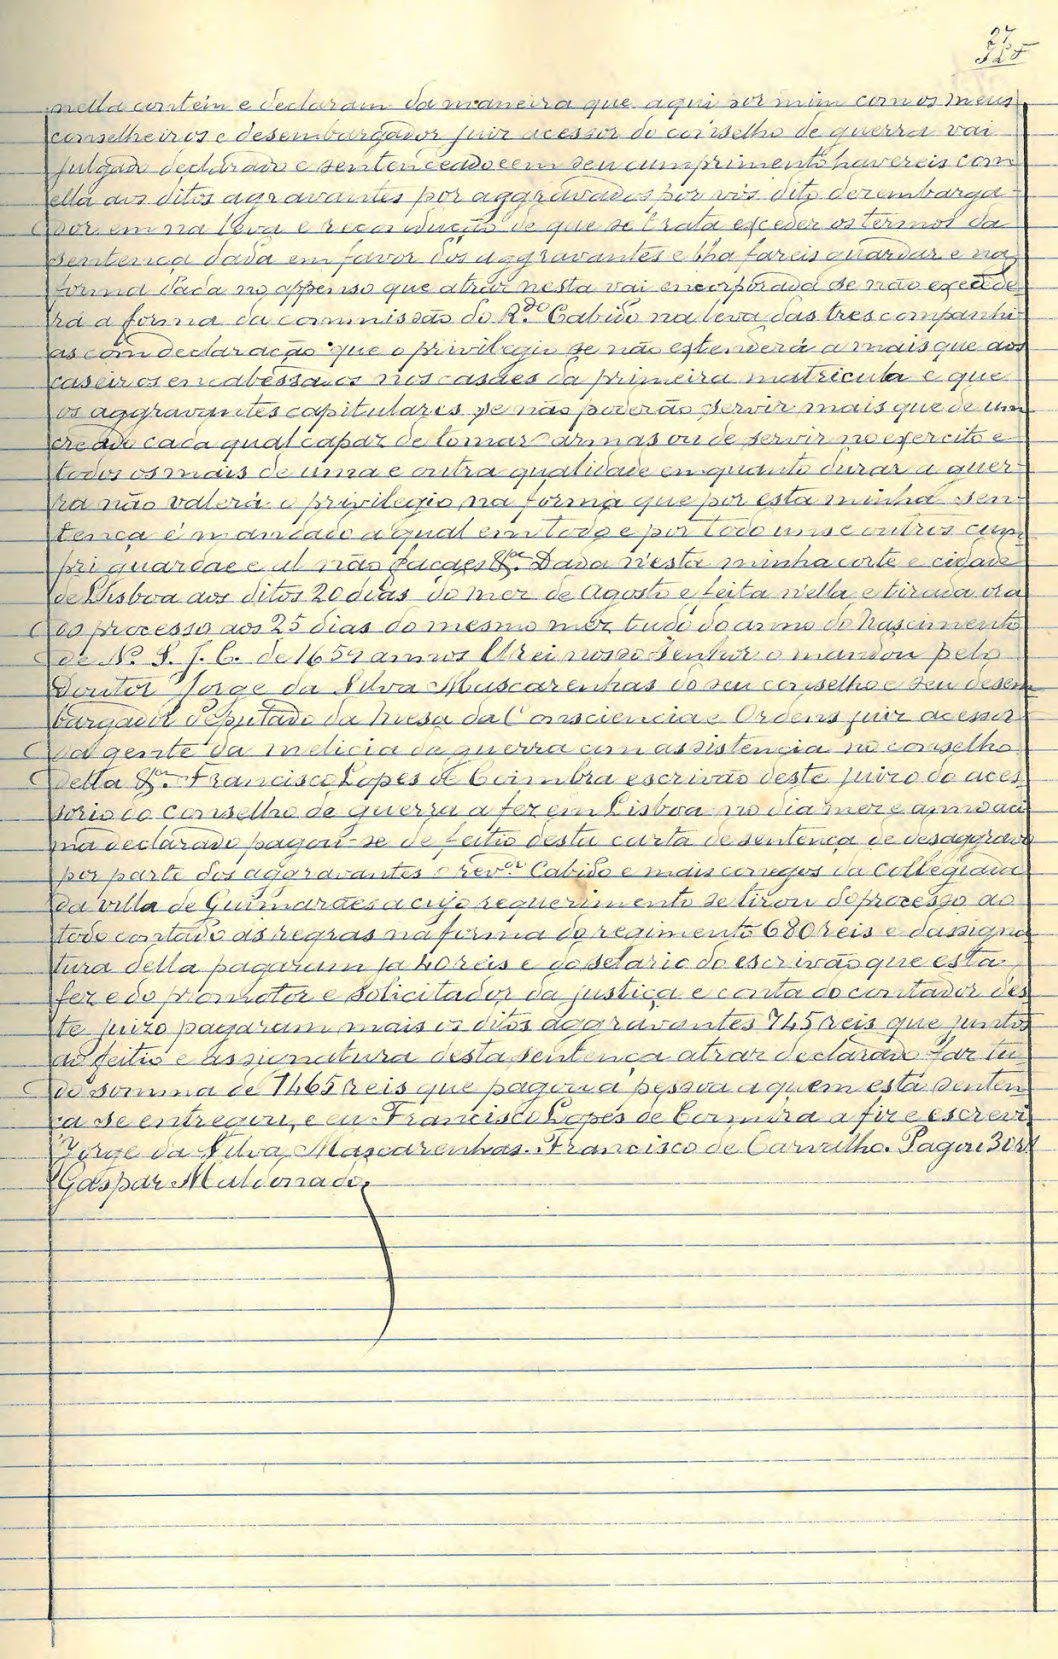 27
nella contem e declaram da maneira que aqui por mim com os meus
conselheiros e desembargador juiz acessor do conselho de guerra vai
julgado declarado e sentenceado e em seu cumprimento havereis com
ella aos ditos agravantes por aggravados por vós dito desembarga-
dor em na leva e reconducção de que se trata exceder os termos da
sentença dada em favor dos aggravantes e lha fareis guardar e na
forma dada no appenso que atraz nesta vai encorporada se não excede-
rá a forma da commissão do R.do Cabido na leva das tres companhi-
as com declaração que o privilegio se não estenderá a mais que aos
caseiros encabessados nos casaes da primeira matricula e que
os aggravantes capitulares se não poderão servir mais que de um
creado cada qual capaz de tomar armas ou de servir no exercito e
todos os mais de uma e outra qualidade em quanto durar a guer-
ra não valerá o privilegio na forma que por esta minha sen-
tença é mandado a qual em todo e por todo uns e outros cum-
pri guardae e al não façaes &.ca Dada n'esta minha corte e cidade
de Lisboa aos ditos 20 dias do mez de Agosto e feita n'ella e tirada
do processo aos 25 dias do mesmo mez tudo do anno do Nascimento
de N. S. J. C. de 1659 annos El rei nosso Senhor o mandou pelo
Doutor Jorge da Silva Mascarenhas do seu conselho e seu desem-
bargador Deputado da Mesa da Consciencia e Ordens juiz acessor
da gente da melicia da guerra com assistencia no conselho
della &.ca Francisco Lopes de Coimbra escrivão deste juizo do aces-
sorio do conselho de guerra a fez em Lisboa no dia mez e anno aci-
ma declarado pagou-se de feitio desta carta de sentença de desaggravo
por parte dos aggravantes o rev.do Cabido e mais conegos da collegiada
da villa de Guimarães a cujo requerimento se tirou do processo ao
todo contado as regras na forma do regimento 680 reis e dassigna-
tura della pagaram ja 40 reis e do selario do escrivão que esta
fez e do promotor e solicitador da justiça e conta do contador des-
te juizo pagaram mais os ditos aggravantes 745 reis que juntos
ao feitio e assignatura desta sentença atraz declarado faz tu-
do somma de 1465 reis que pagou a pessoa a quem esta senten-
ça se entregou, e eu Francisco Lopes de Coimbra a fiz e escrevi
Jorge da Silva Mascarenhas. Francisco de Carvalho. Pagou 30 rs
Gaspar Maldonado.